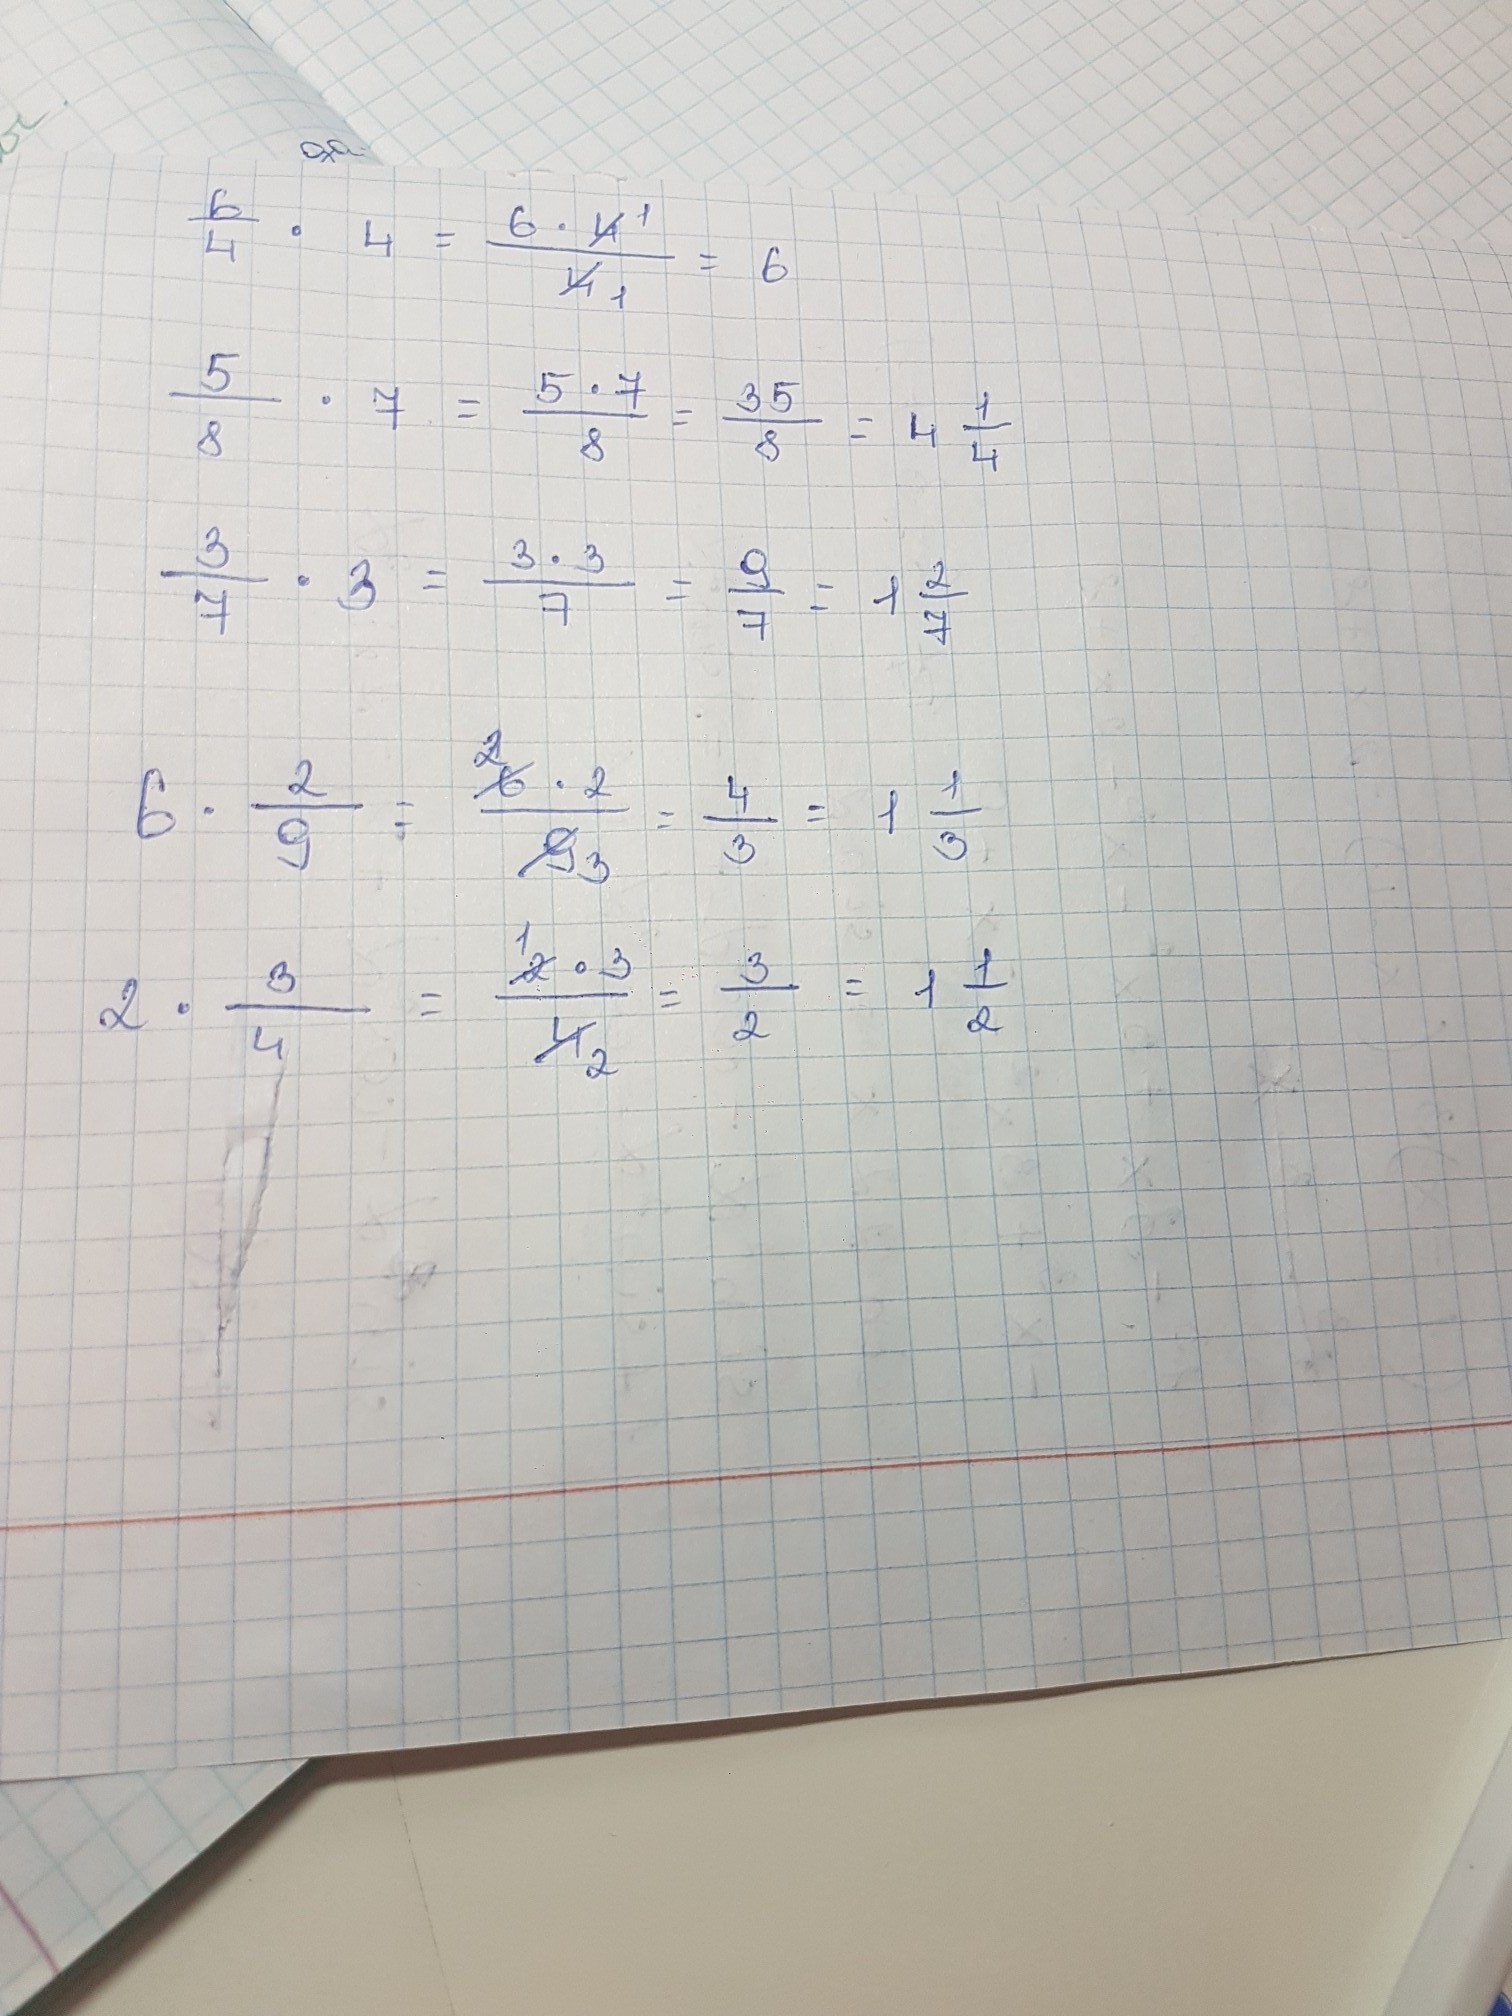 6/4 · 4 = 6 · 4 1 / 4 1 = 6
5/8 · 7 = 5 · 7 / 8 = 35/8 = 4 1/4
3/7 · 3 = 3 · 3 / 7 = 9/7 = 1 2/7
6 · 2/9 = 2 6 · 2 / 9 3 = 4/3 = 1 1/3
2 · 3/4 = 1 2 · 3 / 4 2 = 3/2 = 1 1/2